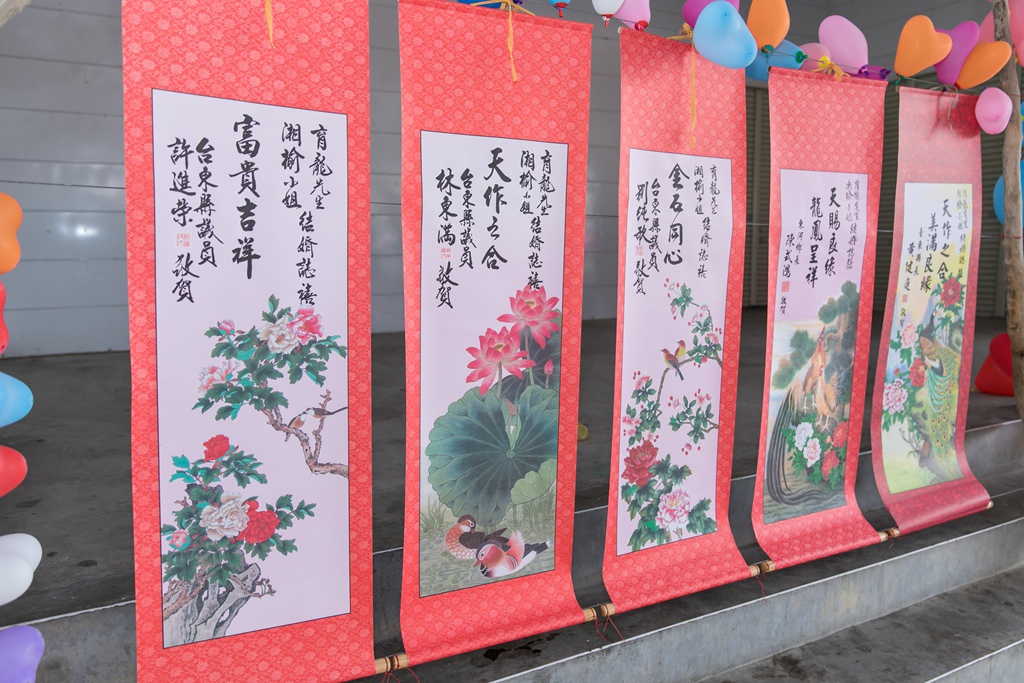 育龍先生
湘榆小姐
結婚誌禧
富貴吉祥
台東縣議員
許進榮
敬賀
育龍先生
湘榆小姐
結婚誌禧
天作之合
台東縣議員
林東滿
敬賀
育龍先生
湘榆小姐
結婚誌禧
金石同心
台東縣議員
敬賀
結婚誌禧
天賜良緣
龍鳳呈祥
敬賀
天作之合
美滿良緣